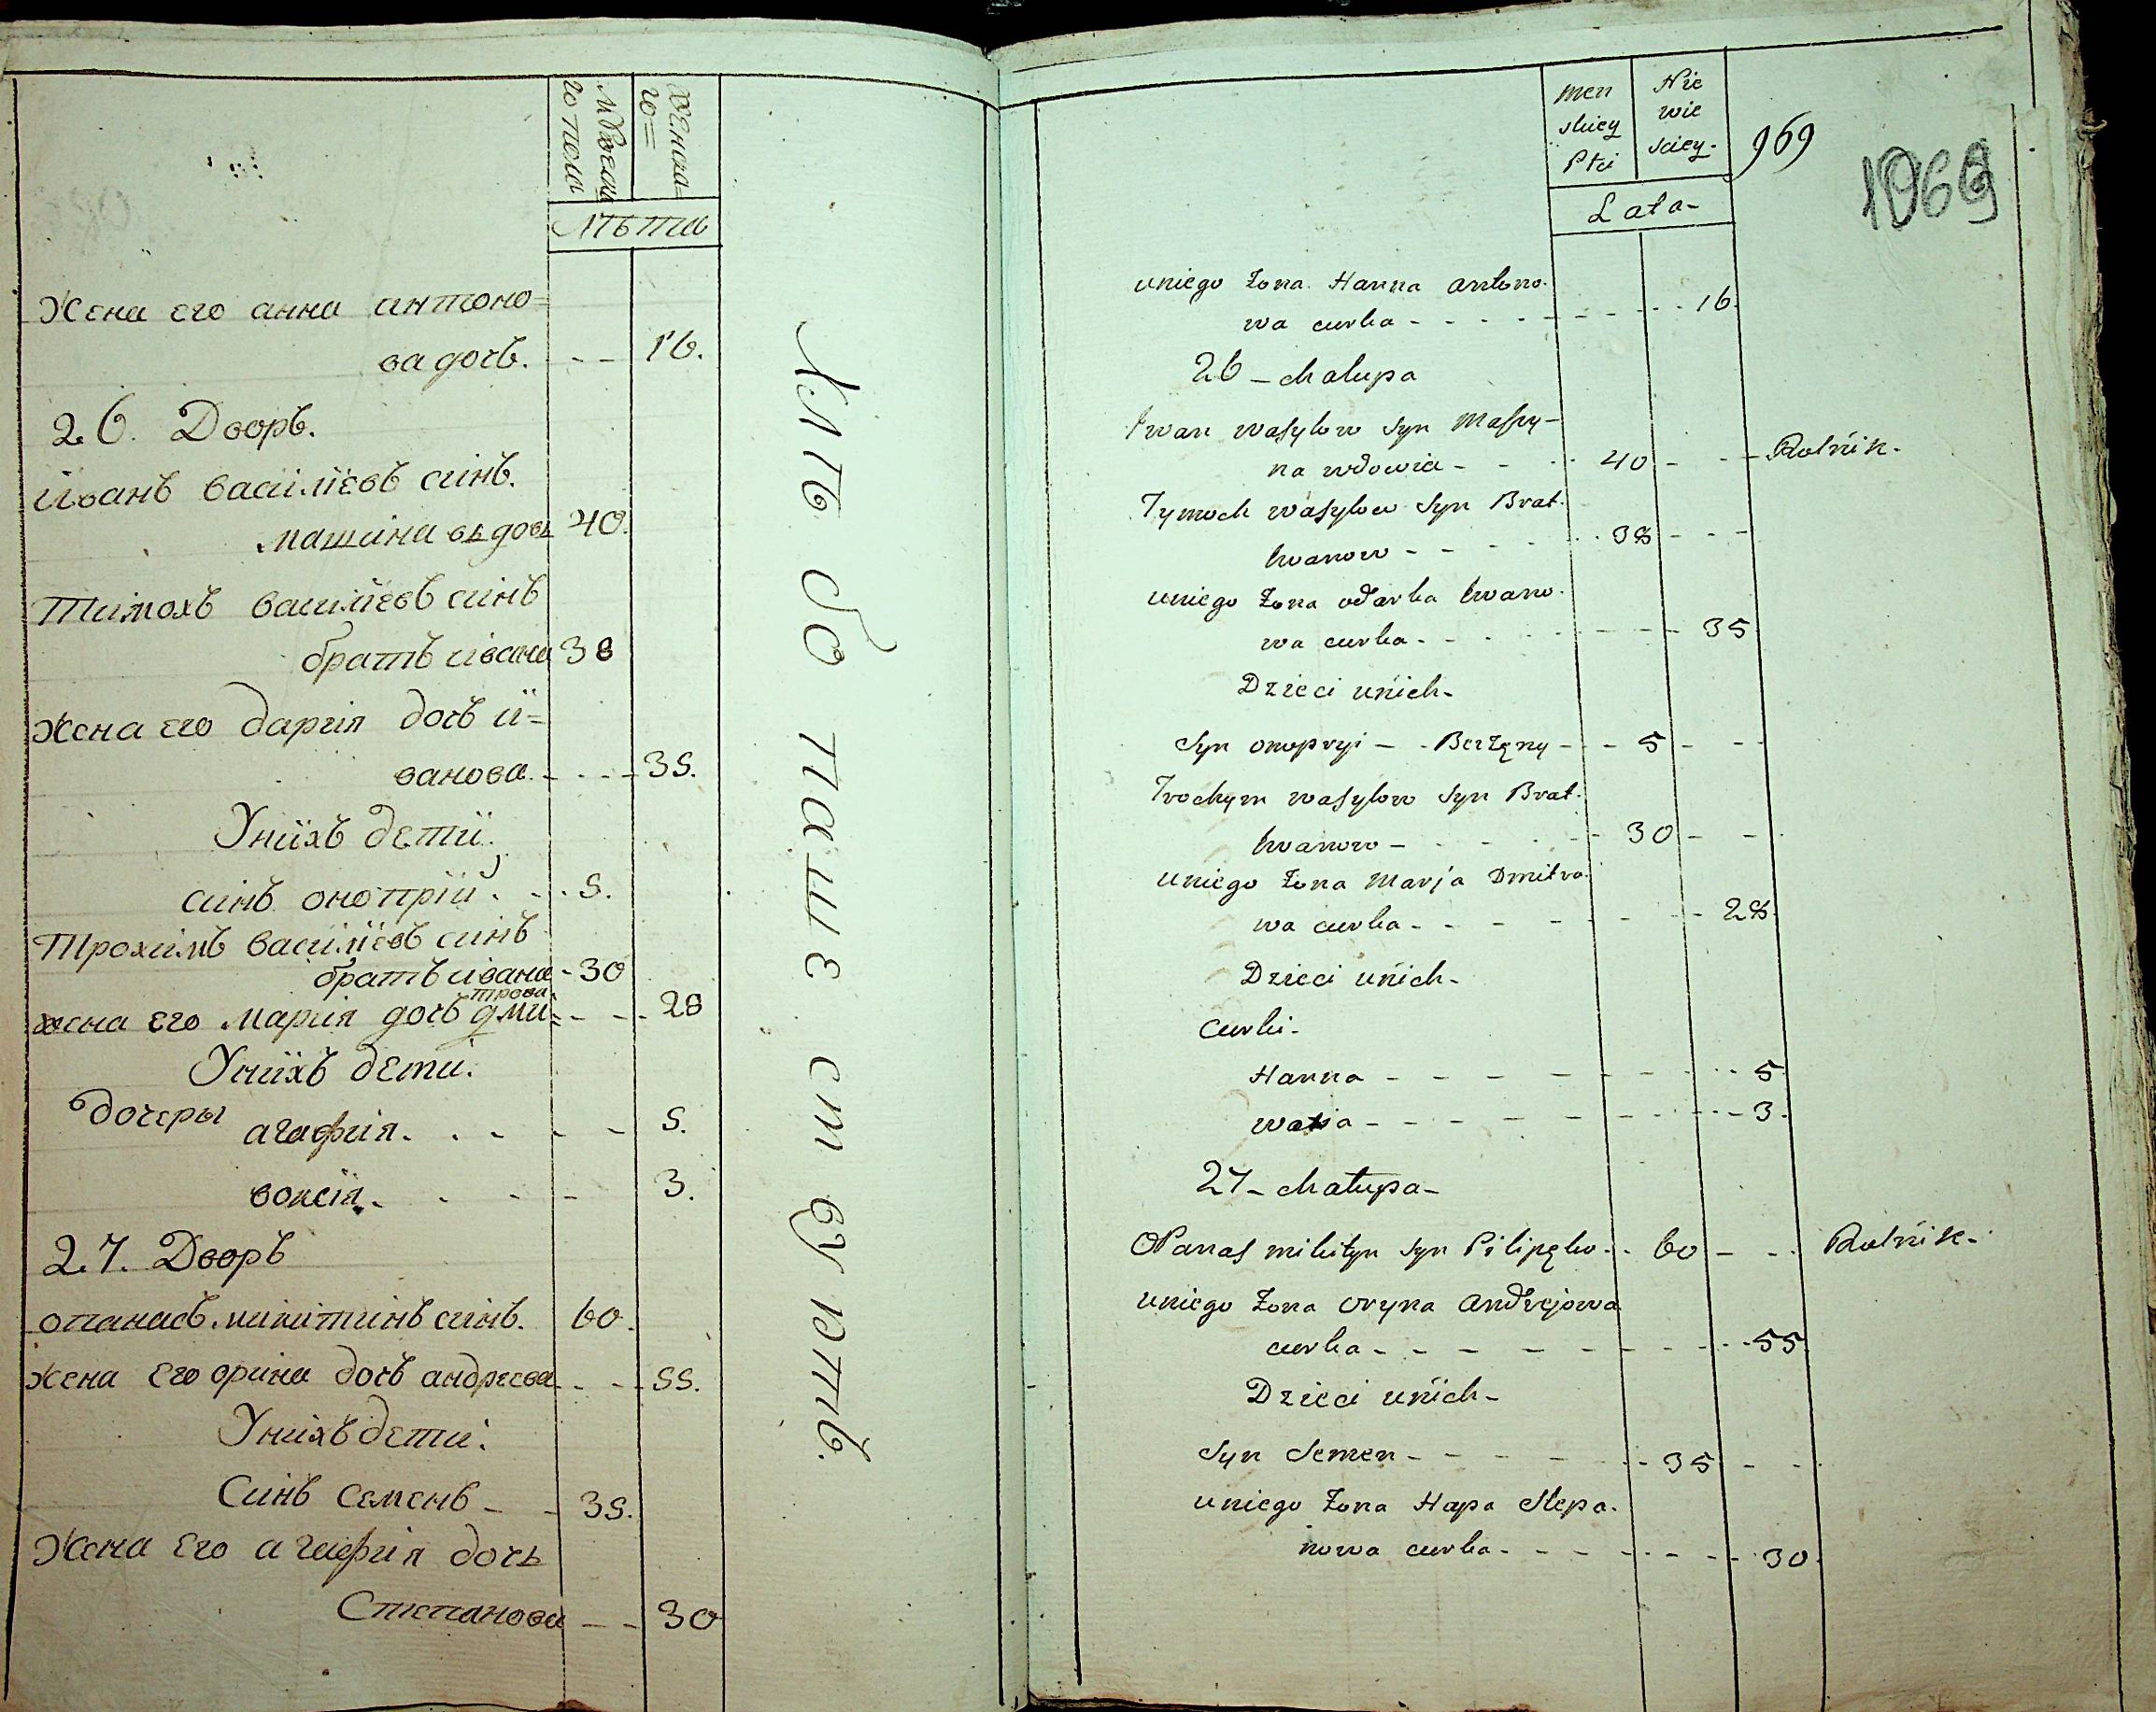 мужеска
го пола
женска=
го=
лѣта
Жена его анна антоно=
ва дочь. 16.
26. Дворъ.
иванъ василіевъ синъ.
машина вьдовь 40.
Тимохъ василіевъ синъ
братъ ивана 38
жена его дария дочъ и=
ванова. 35.
Унихъ дети.
синъ онопрій. 5.
Трохимъ василіевъ синъ
братъ ивана 30
жена его мария дочъ дми=
трова 28
Унихъ дети.
дочеры агафия. 5.
воксія. 3.
27. Дворъ
опанасъ микитинъ синъ. 60.
жена его орина дочъ андреева 55.
Унихъ дети.
Синъ семенъ 35.
Жена его агафия дочь
Степанова 30
969
1069
men
skiey
Płci
Nie
wie
sciey.
Lata
uniego żona Hanna Antono
wa curka 16.
26 chałupa
Iwan wasylow syn Maszy
na wdowia 40 Rolnik.
Tymoch wasylow syn Brat
Iwanow 38
uniego żona odarka Iwano
wa curka 35
Dzieci unich
Syn onopryi 5
Trochym wasylow syn Brat
Iwanow 30
uniego żona Marja Dmitro
wa curka 28
Dzieci unich
Curki
Hanna 5
3
27 chałupa
OPanas mikityn syn Pilipęko 60 Rolnik.
uniego żona oryna Andrejowa
curka 55
Dzieci unich
Syn Semen 35
uniego żona Hapa Stepa
nowa curka 30